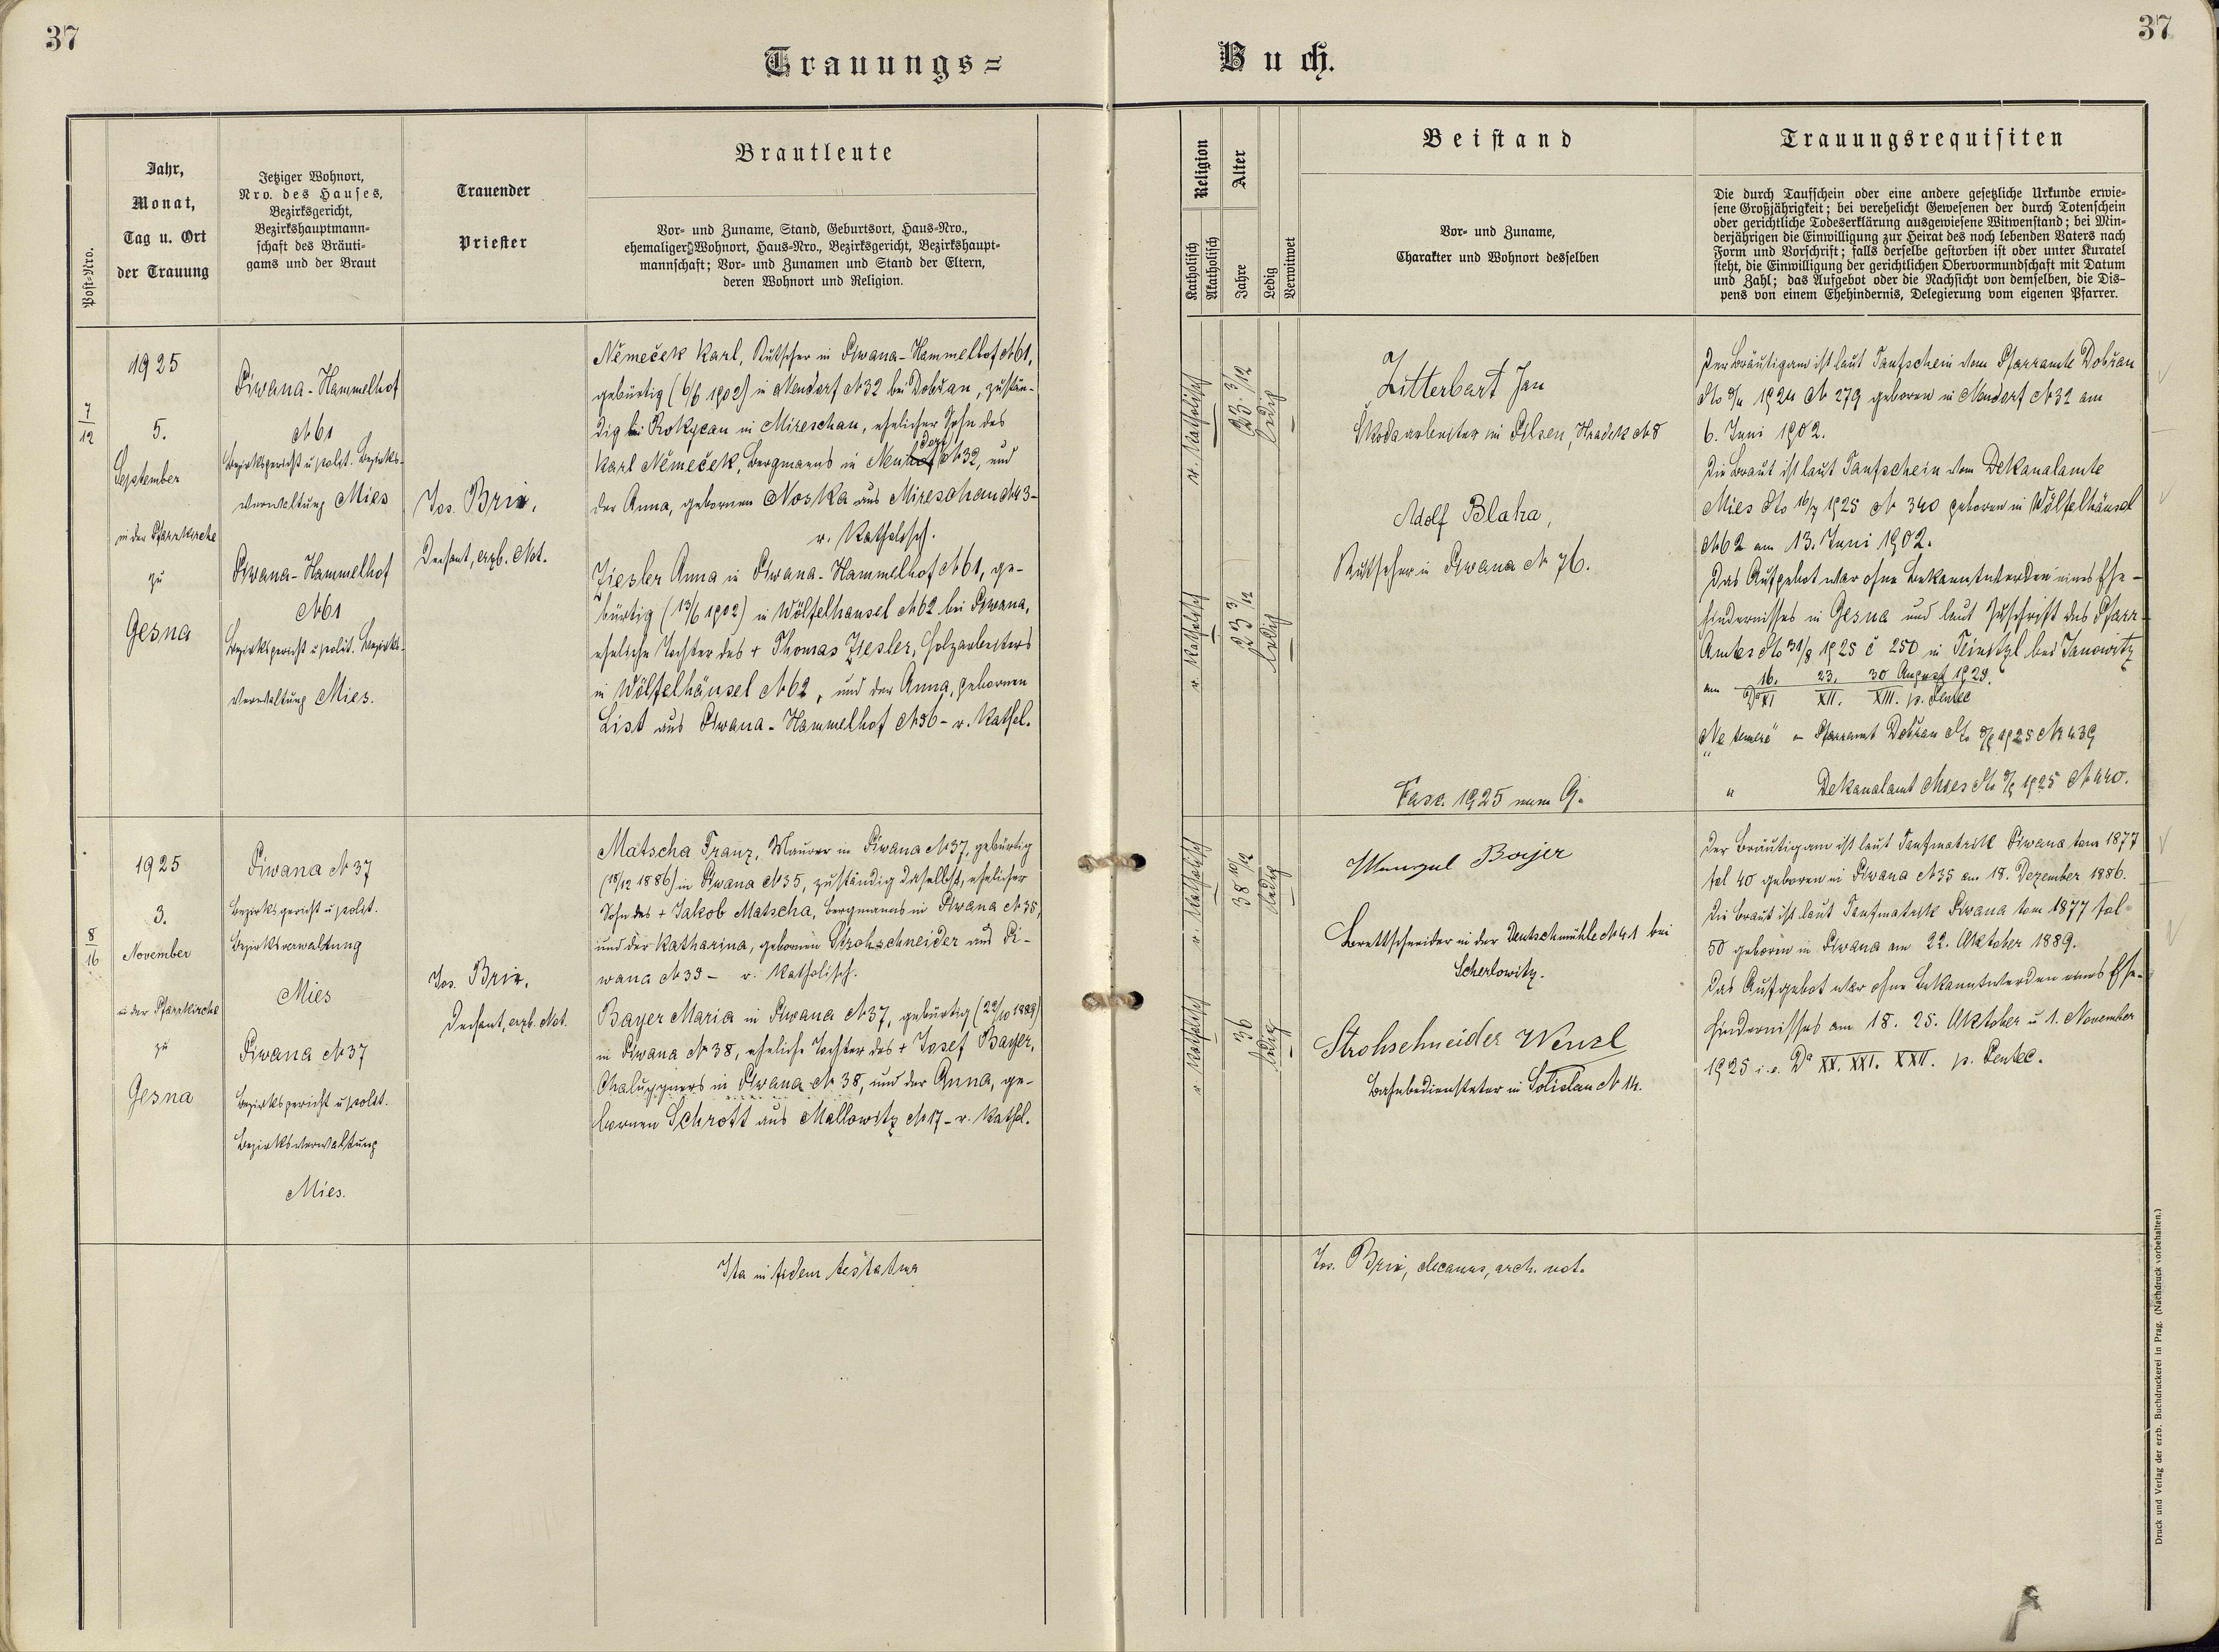 37
37
Trauungs=
Buch.
Post-Nro.
Jahr,
Monat,
Tag u. Ort
der Trauung
Jetziger Wohnort,
Nro. des Hauses,
Bezirksgericht,
Bezirkshauptmann-
schaft des Bräuti-
gams und der Braut
Trauender
Priester
Brautleute
Vor- und Zuname, Stand, Geburtsort, Haus-Nro.,
ehemaliger Wohnort, Haus-Nro., Bezirksgericht, Bezirkshaupt-
mannschaft; Vor- und Zunamen und Stand der Eltern,
deren Wohnort und Religion.
Religion
Katholisch
Akatholisch
Alter
Jahre
Ledig
Verwitwet
Beistand
Vor- und Zuname,
Charakter und Wohnort desselben
Trauungsrequisiten
Die durch Taufschein oder eine andere gesetzliche Urkunde erwie-
sene Großjährigkeit; bei verehelicht Gewesenen der durch Totenschein
oder gerichtliche Todeserklärung ausgewiesene Witwenstand; bei Min-
derjährigen die Einwilligung zur Heirat des noch lebenden Vaters nach
Form und Vorschrift; falls derselbe gestorben ist oder unter Kuratel
steht, die Einwilligung der gerichtlichen Obervormundschaft mit Datum
und Zahl; das Aufgebot oder die Nachsicht von demselben, die Dis-
pens von einem Ehehindernis, Delegierung vom eigenen Pfarrer.
7/12
1925
5.
September
in der Pfarrkirche
zu
Gesna
Piwana-Hammelhof
N 61
Bezirksgericht u polit. Bezirks-
verwaltung Mies
Piwana-Hammelhof
N 61
Bezirksgericht u polit. Bezirks-
verwaltung Mies.
Jos. Brix,
Dechant, erzb. Not.
Němeček Karl, Kutscher in Piwana-Hammelhof N 61,
gebürtig (6/6 1902) in Neudorf N 32 bei Dobřan, zustän-
dig bei Rokycan in Mireschau, ehelicher Sohn des
Karl Němeček, Bergmanns in Neudorf N 32, und
der Anna, gebornen Noska aus Mireschau N 43 -
r. Katholisch.
Ziesler Anna in Piwana-Hammelhof N 61, ge-
bürtig (13/6 1902) in Wölfelhäusel N 62 bei Piwana,
eheliche Tochter des + Thomas Ziesler, Holzarbeiters
in Wölfelhäusel N 62, und der Anna, gebornen
List aus Piwana-Hammelhof N 56 - r. Kathol.
r. Katholisch
23 3/12
ledig
r. Katholisch
23 3/12
ledig
Zitterbart Jan
Škodaarbeiter in Pilsen, Hradek N 8
Adolf Blaha,
Kutscher in Piwana N 76.
Fasc. 1925 num 9.
Der Bräutigam ist laut Taufschein vom Pfarramte Dobřan
1924 N 279 geboren in Neudorf N 32 am
6. Juni 1902.
Die Braut ist laut Taufschein vom Dekanalamte
Mies dto 16/7 1925 N 340 geboren in Wölfelhäusel
N 62 am 13. Juni 1902.
Das Aufgebot war ohne Bekanntwerden eines Ehe-
hindernisses in Gesna und laut Zuschrift des Pfarr-
Amtes dto 31/8 1925 č 250 in Teinitzl bei Janowitz
am 16. 23. 30 August 1925.
Da XI XII. XIII. p. Pentec
"Ne temere" - Pfarramt Dobřan dto 9/9 1925 N 439
" Dekanalamt Mies dto 9/9 1925 N 440.
8/16
1925
3.
November
in der Pfarrkirche
zu
Gesna
Piwana N 37
Bezirksgericht u polit.
Bezirksverwaltung
Mies
Piwana N 37
Bezirksgericht u polit.
Bezirksverwaltung
Mies.
Jos. Brix,
Dechant, erzb. Not.
Matscha Franz, Maurer in Piwana N 37, gebürtig
(18/12 1886) in Piwana N 35, zuständig daselbst, ehelicher
Sohn des + Jakob Matscha, Bergmanns in Piwana N 35,
und der Katharina, gebornen Strohschneider aus Pi-
wana N 33 - r. Katholisch.
Bayer Maria in Piwana N 37, gebürtig (22/10 1889)
in Piwana N 38, eheliche Tochter des + Josef Bayer,
Chaluppners in Piwana N 38, und der Anna, ge-
bornen Schrott aus Mallowitz N 17 - r. Kathol.
r. Katholisch
38 10/12
ledig
r. Katholisch
36
ledig
Wenzel Bayer
Brettschneider in der Deutschmühle N 41 bei
Scherlowitz.
Strohschneider Wenzl
Bahnbediensteter in Solislau N 14.
Der Bräutigam ist laut Taufmatrik Piwana tom 1877
fol 40 geboren in Piwana N 35 am 18. Dezember 1886.
Die Braut ist laut Taufmatrik Piwana tom 1877 fol
50 geboren in Piwana am 22. Oktober 1889.
Das Aufgebot war ohne Bekanntwerden eines Ehe-
hindernisses am 18. 25. Oktober u 1. November
1925 i. e. Da XX. XXI. XXII. p. Pentec.
Ita in fidem testatur
Jos. Brix, decanus, arch. not.
Druck und Verlag der erzb. Buchdruckerei in Prag. (Nachdruck vorbehalten.)